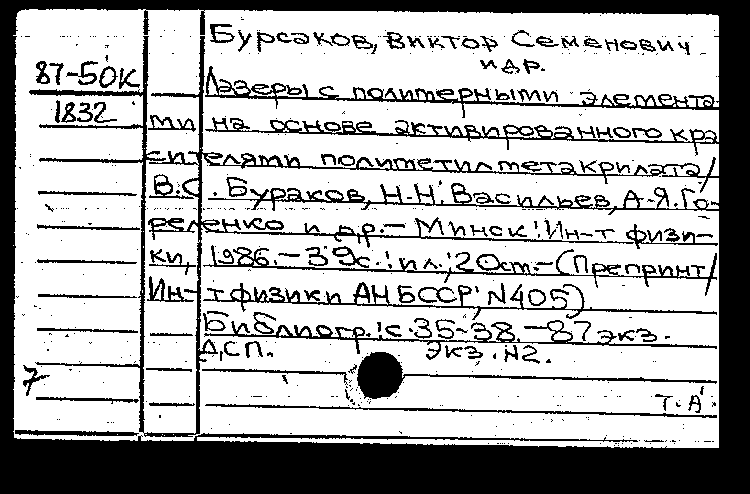 Бурсаков, Виктор Семенович
и др.
87-50К
Лазеры с полимерными элемента-
1832
ми на основе активированного кра-
сителями полиметилметакрилата/
В.С. Бураков, Н.Н. Васильев, А.Я. Го-
реленко и др.- Минск: Ин-т физи-
ки, 1986.- 39с.: ил.; 20см.- (Препринт/
Ин-т физики АН БССР; N405)
Библиогр.: с. 35-38. - 87 экз.
ДСП. экз. N2.
7
Т. А.